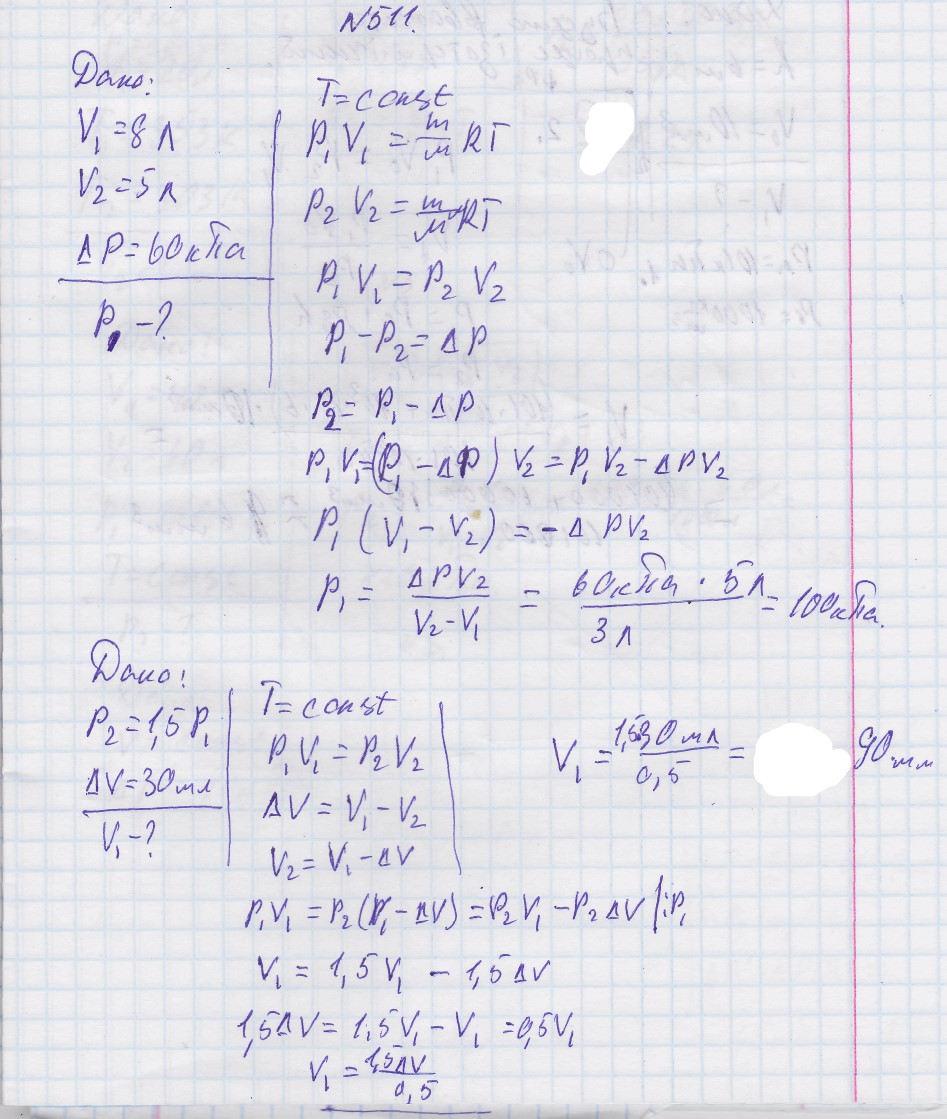 N511.
Дано:
V₁ = 8 л
V₂ = 5 л
ΔP = 60 кПа
P₁ - ?
T = const
P₁ V₁ = m/м RT
P₂ V₂ = m/м RT
P₁ V₁ = P₂ V₂
P₁ - P₂ = ΔP
P₂ = P₁ - ΔP
P₁ V₁ = (P₁ - ΔP) V₂ = P₁ V₂ - ΔP V₂
P₁ (V₁ - V₂) = - ΔP V₂
P₁ = ΔP V₂ / V₂ - V₁ = 60 кПа · 5 л / 3 л = 100 кПа.
Дано:
P₂ = 1,5 P₁
ΔV = 30 мл
V₁ - ?
T = const
P₁ V₁ = P₂ V₂
ΔV = V₁ - V₂
V₂ = V₁ - ΔV
V₁ = 1,5 30 мл / 0,5 = 90 мл
P₁ V₁ = P₂ (V₁ - ΔV) = P₂ V₁ - P₂ ΔV |: P₁
V₁ = 1,5 V₁ - 1,5 ΔV
1,5 ΔV = 1,5 V₁ - V₁ = 0,5 V₁
V₁ = 1,5 ΔV / 0,5